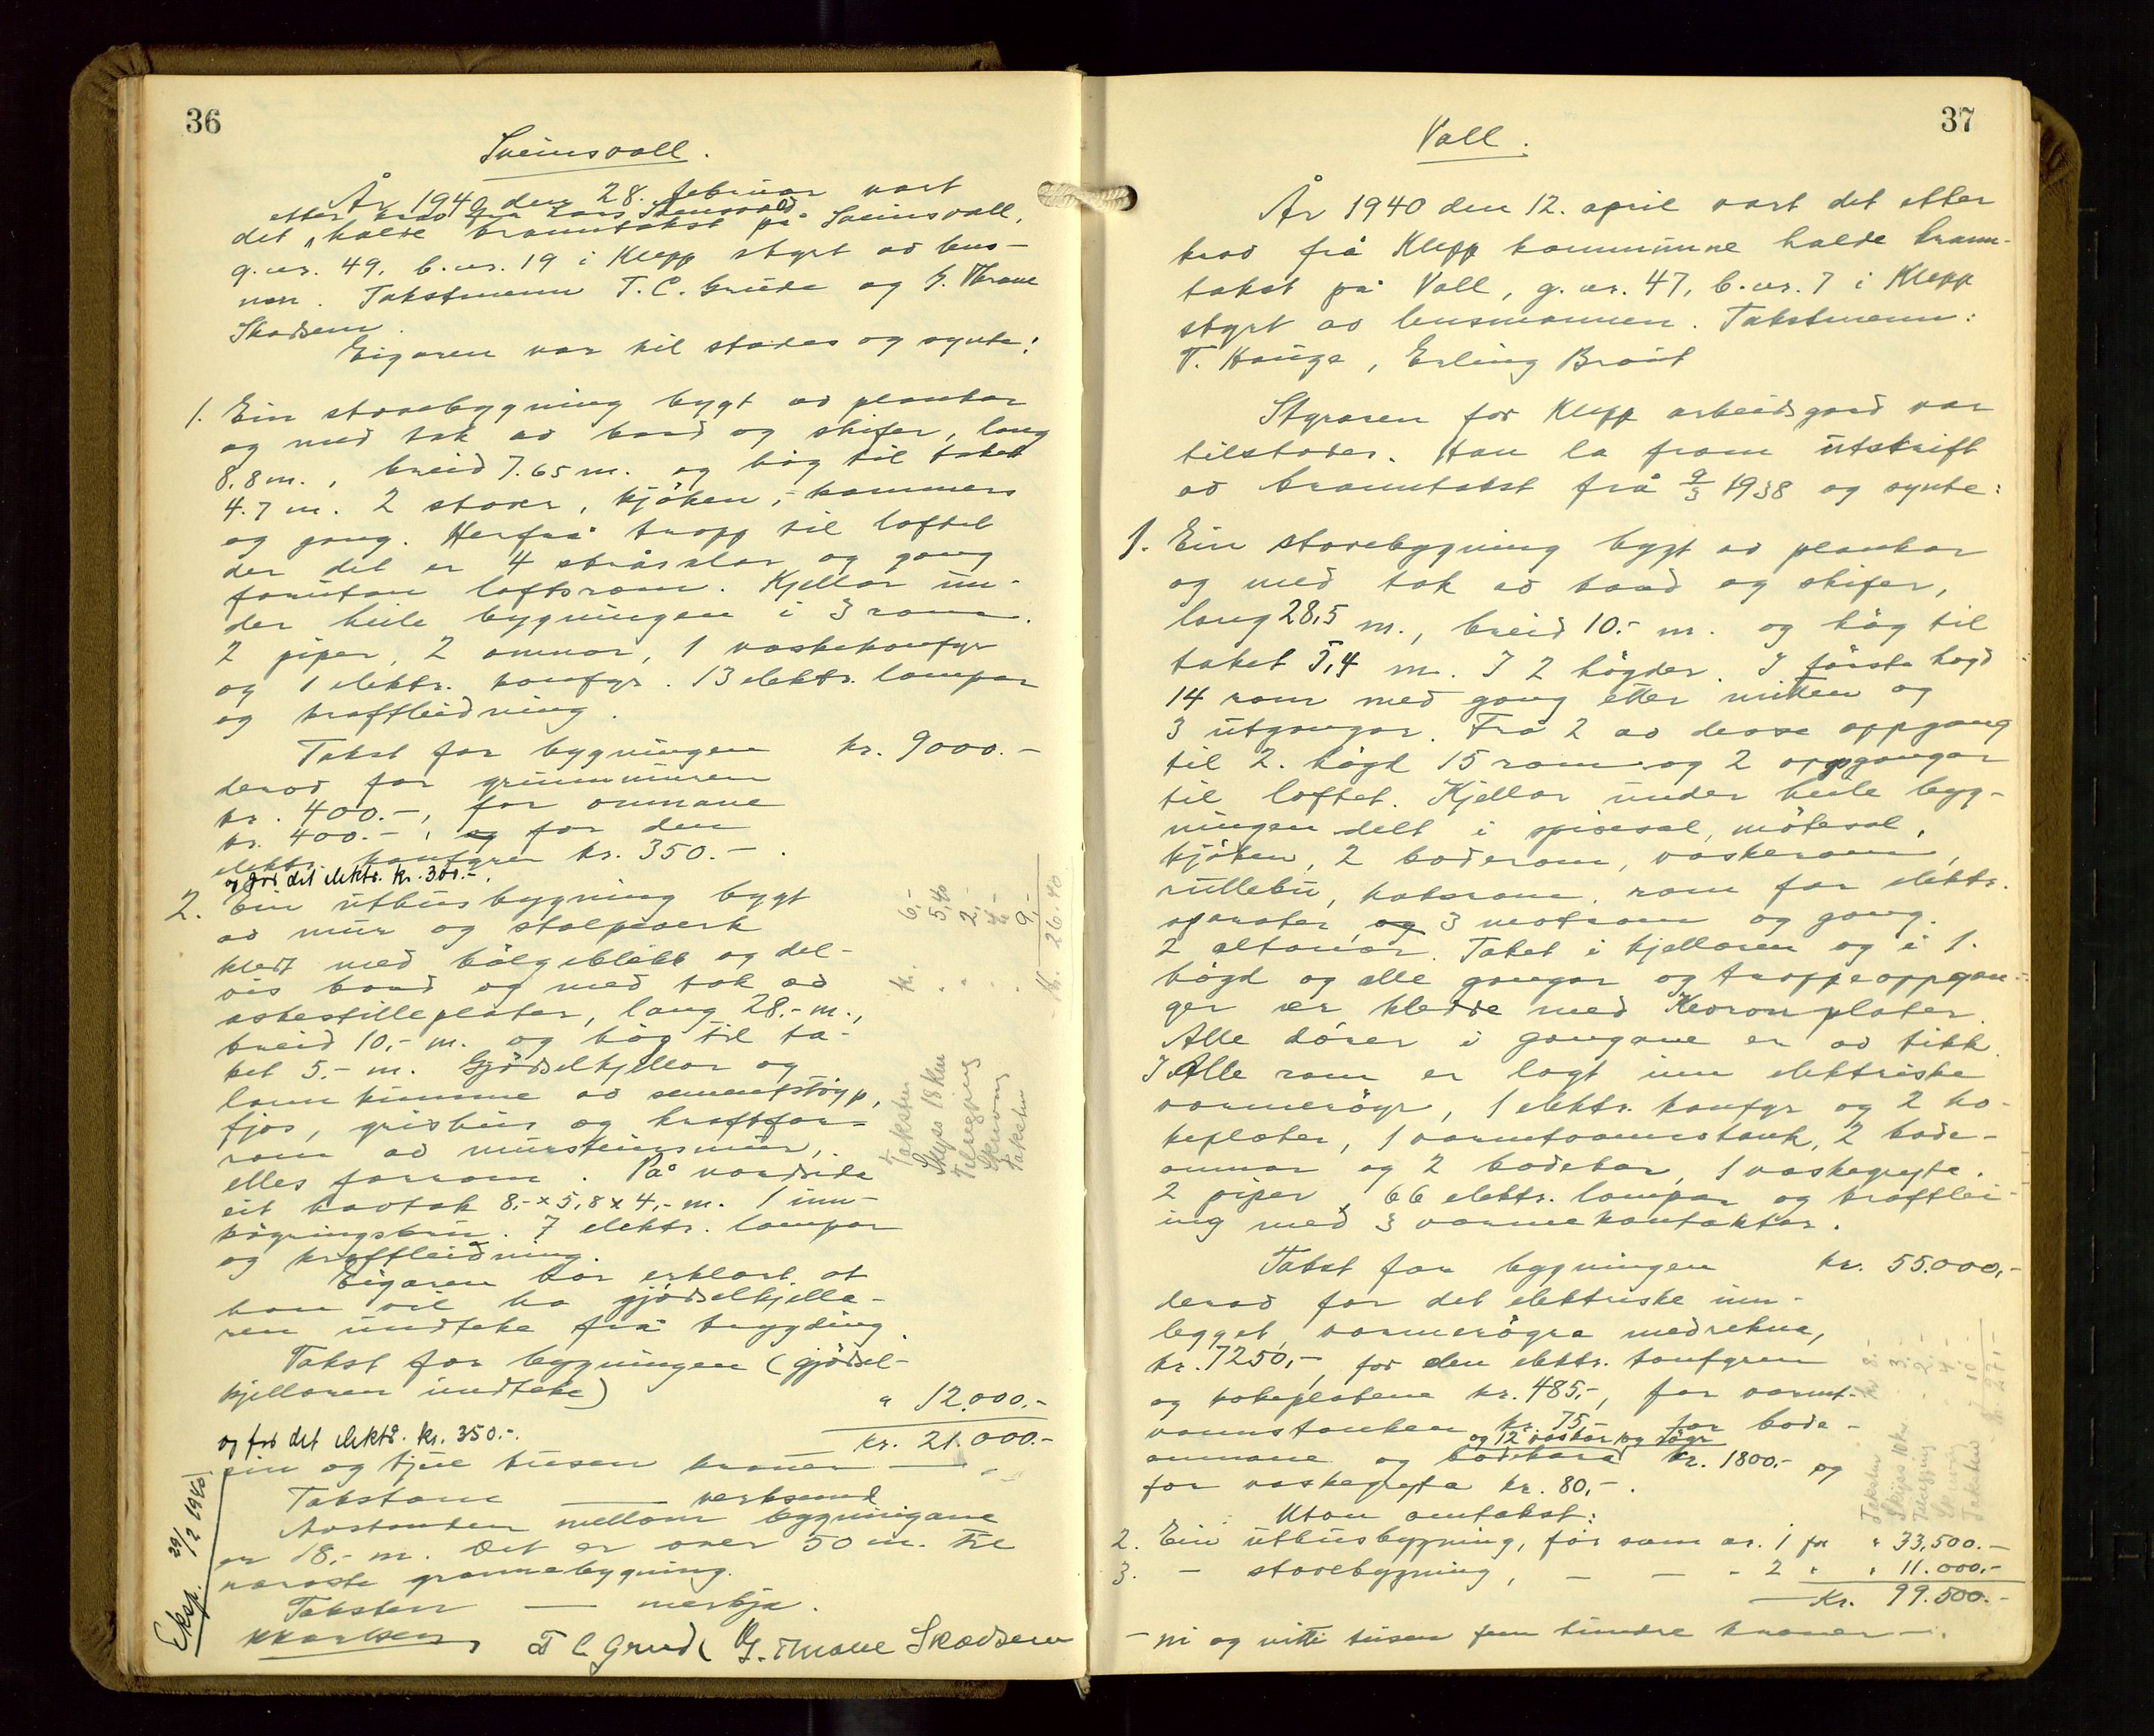 36
Sveinsvoll.
År 1940 den 28. februar vart
etter krav frå Lars Sveinsvoll
det halde branntakst på Sveinsvoll,
g.nr. 49, b.nr. 19 i Klepp styrt av lens-
mann. Takstmenn T. C. Grude og G. Thrane
Skadsem.
Eigaren var til stades og synte:
1. Ein stovebygning bygt av plankar
og med tak av bord og skifer, lang
8.8 m., breid 7.65 m. og høg til taket
4.7 m. 2 stover, kjøken, kammers
og gang. Herfrå trapp til loftet
der det er 4 stråsalar og gang
forutan loftsrom. Kjellar un-
der heile bygningen i 3 rom.
2 piper, 2 omnar, 1 vaskekomfyr
og 1 elektr. komfyr. 13 elektr. lampar
og kraftleidning.
Takst for bygningen kr. 9000.-
derav for grunnmuren
kr. 400.-, for omnane
kr. 400.-, og for den
elektr. komfyren kr. 350.-.
og for det elektr. kr. 300.-.
2. Ein uthusbygning bygt
av mur og stolpeverk
kledt med bølgeblikk og del-
vis bord og med tak av
asbestilleplater, lang 28.- m.,
breid 10,- m. og høg til ta-
ket 5.- m. Gjødselkjellar og
land kumme av sementstøyp,
fjos, grishus og kraftfor-
rom av mursteinsmur,
elles forrom. På nordsida
eit havtak 8,- x 5,8 x 4,- m. 1 inn-
køyringsbru. 7 elektr. lampar
og kraftleidning.
Eigaren har erklært at
han vil ha gjødselkjella-
ren undteke frå trygding.
Takst for bygningen (gjødsel-
kjellaren undteke) " 12.000.-
og for det elektr. kr. 350.-. kr. 21.000.-
ein og tjue tusen kroner
Takstane — verksemd
Avstanden mellom bygningane
er 18,- m. Det er over 50 m. til
næraste grannebygning.
Taksten — merkja.
T C Grude G. Thrane Skadsem
Eksp. 29/2 1940
Taksten kr. 6,-
Skyss 18 km " 5,40
Tilsegging " 2,-
Skriving 4,-
Taksten " 9,-
kr. 26.40
37
Vall.
År 1940 den 12. april vart det etter
krav frå Klepp kommune halde brann-
takst på Vall, g.nr. 47, b.nr. 7 i Klepp
styrt av lensmannen. Takstmenn:
T. Hauge, Erling Braut
Styraren for Klepp arbeidsgard var
tilstades. Han la fram utskrift
av branntakst frå 9/3 1938 og synte:
1. Ein stovebygning bygt av plankar
og med tak av bord og skifer,
lang 28,5 m., breid 10.- m. og høg til
taket 5,4 m. I 2 høgder. I første høgd
14 rom med gang etter midten og
3 utgangar. Frå 2 av desse oppgang
til 2. høgd 15 rom og 2 oppgangar
til loftet. Kjellar under heile byg-
ningen delt i spisesal, møtesal,
kjøken, 2 baderom, vaskerom,
rullebu, kokerom, rom for elektr.
aparater, og 3 matrom og gang.
2 altanar. Taket i kjellaren og i 1.
høgd og alle gangar og trappeoppgan-
ger er kledde med Keoronplater.
Alle dører i gangane er av tikk.
I Alle rom er lagt inn elektriske
varmerøyr, 1 elektr. komfyr og 2 ko-
keplater, 1 varmtvannstank, 2 bade-
omnar og 2 badekar, 1 vaskegryta.
2 piper, 66 elektr. lampar og kraftlei-
ing med 3 varmekontaktar.
Takst for bygningen kr. 55.000,-
derav for det elektriske inn-
legget, varmerøyra medrekna,
kr. 7250,-, for den elektr. komfyren
og kokeplatene kr. 485,-, for varmt-
vannstanken kr. 75,- for bade-
og 12 vaskar og røyr
omnane og badekara kr. 1800,- og
for vaskegryta kr. 80,-.
Utan omtakst:
2. Ein uthusbygning, før som nr. 1 for " 33.500.-
3. - stovebygning, — — - 2 " " 11.000.-
Kr. 99.500.-
- ni og nitti tusen fem hundre kroner -.
Taksten kr 8.-
Skyss 10 km " 3.-
Tilsegging - 2.-
Skriving " 4.-
Taksten " 10.-
kr. 27,-